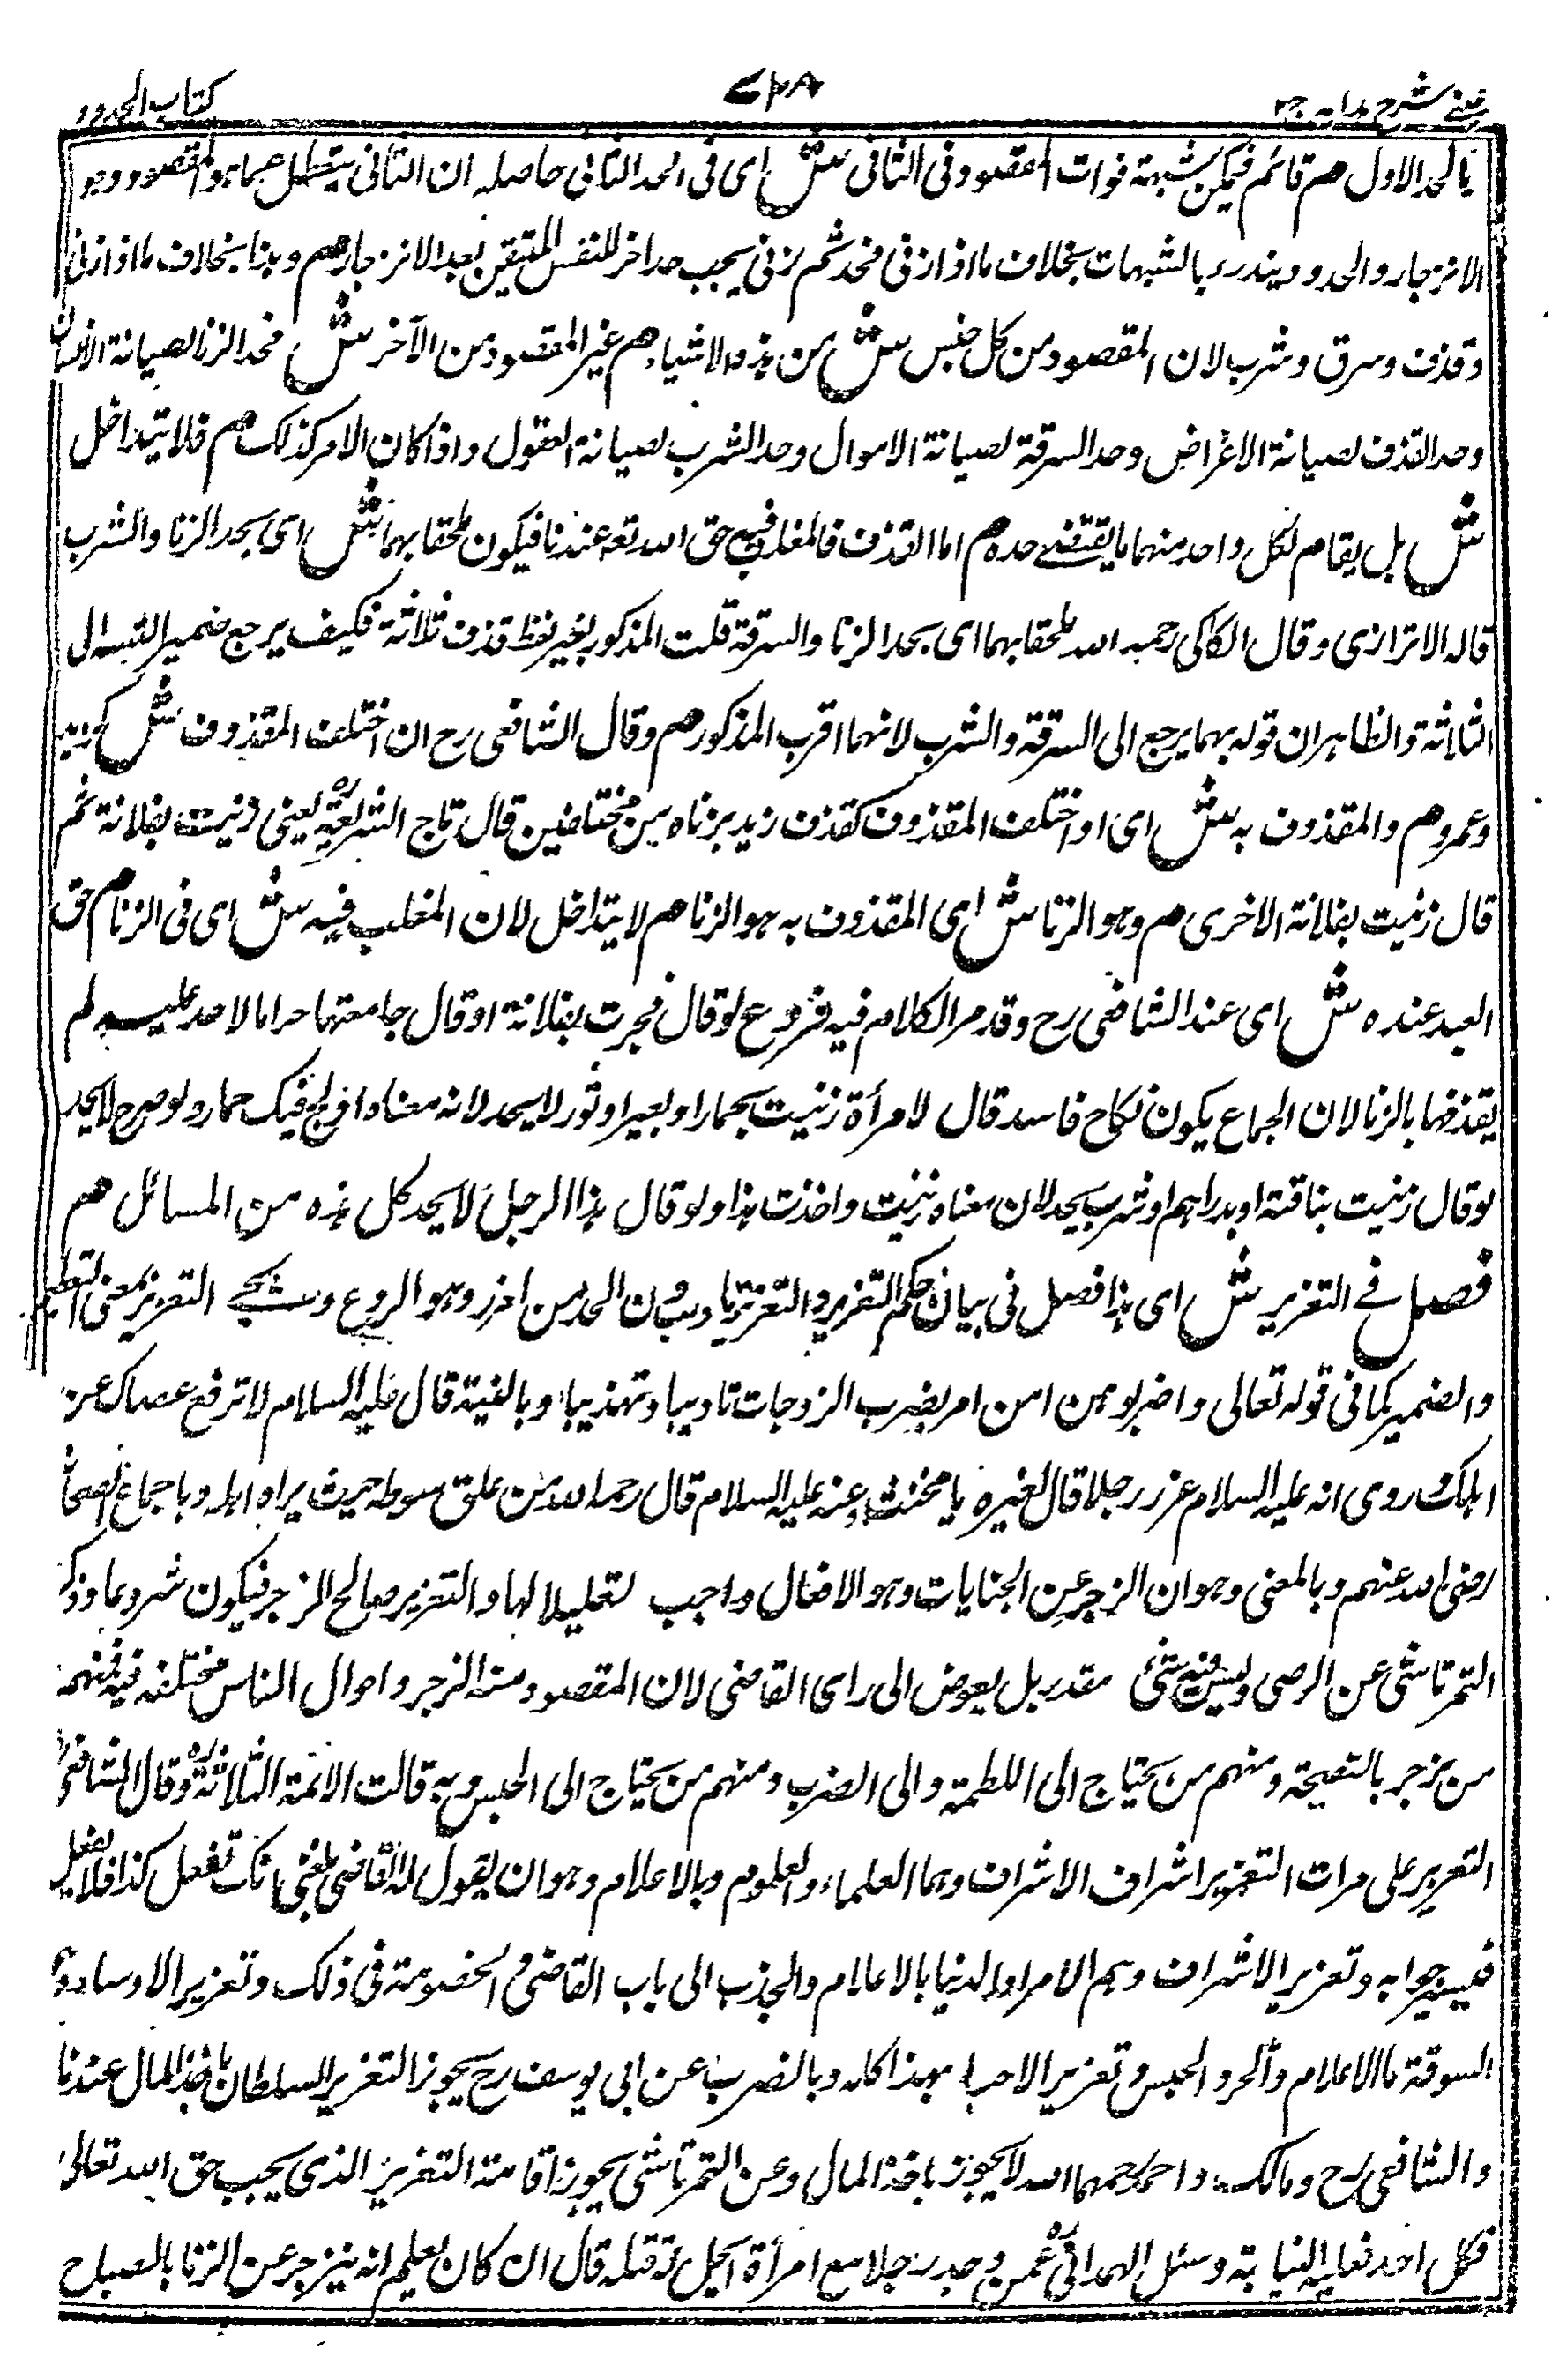 عيني شرح هدايه ج٢
٧٢٨
كتاب الحدود
بالحد الاول هم قائم فيمكن شبهة فوات المقصود فى الثانى ش اى فى الحد الثانى حاصله ان الثانى يتعطل عما هو المقصود وهو
الانزجار والحدود يندرء بالشبهات بخلاف ما اذا زنى فحد ثم زنى يجب حد اخر للنفس المتيقن بعد الانزجار هم وهذا بخلاف ما اذا زنى
وقذف وسرق وشرب لان المقصود من كل جنس ش من هذه الاشياء هم غير المقصود من الآخر ش فحد الزنا لصيانة الانسان
وحد القذف لصيانة الاعراض وحد السرقة لصيانة الاموال وحد الشرب لصيانة العقول واذا كان الامر كذلك هم فلا يتداخل
ش بل يقام لكل واحد منهما ما يقتضے حده هم اما القذف فالمغلب فيه حق الله تعه عندنا فيكون ملحقا بهما ش اى بحد الزنا والشرب
قاله الاترازى وقال الكاكى رحمه الله ملحقا بهما اى بحد الزنا والسرقة قلت المذكور بغير لفظ قذف ثلاثة فكيف يرجع ضمير التثنية الى
الثلثة والظاهر ان قوله بهما يرجع الى السرقة والشرب لانهما اقرب المذكور هم وقال الشافعى رح ان اختلف المقذوف ش كزيد
وعمرو هم والمقذوف به ش اى او اختلف المقذوف كقذف زيد بزناه بين مختلفين قال تاج الشريعة يعنى زنيت بفلانة ثم
قال زنيت بفلانة الاخرى هم وهو الزنا ش اى المقذوف به هو الزنا هم لا يتداخل لان المغلب فيه ش اى فى الزنا هم حق
العبد عنده ش اى عند الشافعى رح وقد مر الكلام فيه فروع لو قال فجرت بفلانة او قال جامعتها حراما لا حد عليه لم
يقذفها بالزنا لان الجماع يكون نكاح فاسد قال لامرأة زنيت بحمار او بعير او ثور لا يحد لانه معناه اولج فيك حمار ولو صرح لا يحد
لو قال زنيت بناقة او بدراهم او ثوب يحد لان معناه زنيت واخذت هذا ولو قال هذا الرجل لا يحد كل هذه من المسائل هم
فصل فے التعزير ش اى هذا فصل فى بيان حكم التعزير والتعزير تاديب دون الحد من العزر وهو الردع و التعزير بمعنى التعظيم
والضمير كما فى قوله تعالى واضربوهن امر بضرب الزوجات تاديبا وتهذيبا وبالسنة قال عليه السلام لا ترفع عصاك عن
اهلك وروى انه عليه السلام عزر رجلا قال لغيره يا مخنث وعنه عليه السلام قال رحم الله من علق سوطه حيث يراه اهله وباجماع الصحابة
رضى الله عنهم وبالمعنى وهو ان الزجر عن الجنايات وهو الافعال واجب لتقليلا لها والتعزير صالح الزجر فيكون مشروعا وذكر
التمرتاشى عن السرخسى وليس فيه شئ مقدر بل يفوض الى راى القاضى لان المقصود منه الزجر واحوال الناس مختلفة فيه فمنهم
من ينزجر بالنصيحة ومنهم من يحتاج الى اللطمة والى الضرب ومنهم من يحتاج الى الحبس وبه قالت الائمة الثلاثة وقال الشافعى
التعزير على مراتب التعزير اشراف الاشراف وهما العلماء والعلوم وبالاعلام وهو ان يقول له القاضى بلغنى انك تفعل كذا فلا تفعل
 جوابه وتعزير الاشراف وهم الامراء والدنيا بالاعلام والجذب الى باب القاضى والخصومة فى ذلك وتعزير الاوساط وهم
السوقة بالاعلام والجر والحبس وتعزير الاخساء بهذا كله وبالضرب عن ابى يوسف رح يجوز التعزير للسلطان باخذ المال عندنا
والشافعى رح ومالك واحمد رحمهما الله لا يجوز باخذ المال وعن التمرتاشى يجوز اقامة التعزير الذى يجب حق الله تعالى
فكل احد نعليه النيابة وسئل الهمدانى عمن وجد رجلا مع امرأة ايحل له قتله قال ان كان يعلم انه ينزجر عن الزنا بالصياح